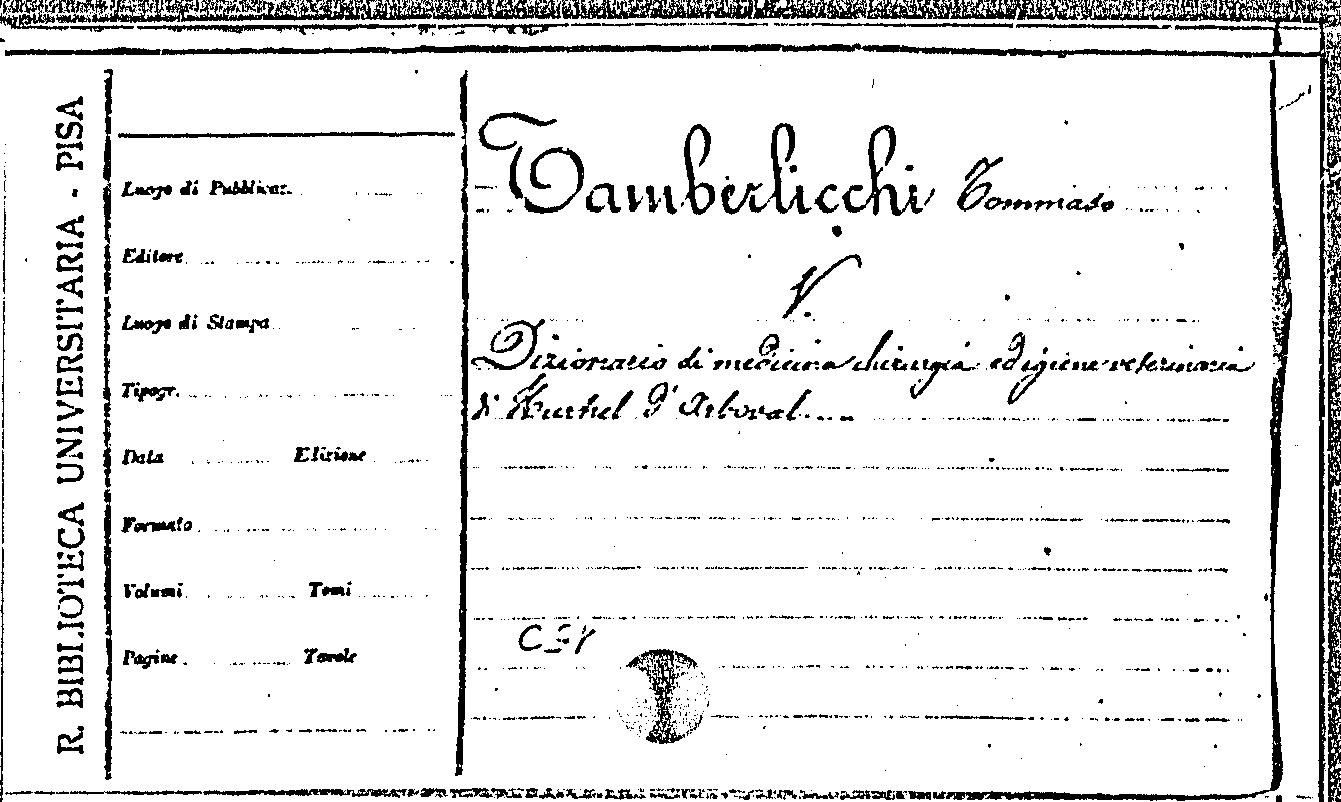 R. BIBLIOTECA UNIVERSITARIA - PISA
Luogo di Pubblicaz.
Editore
Luogo di Stampa
Tipogr.
Data Edizione
Formato
Volumi Tomi
Pagine Tavole
Tamberlicchi Tommaso
V.
Dizionario di medicina chirurgia ed igiene veterinaria
di Hurtrel d'Arboval....